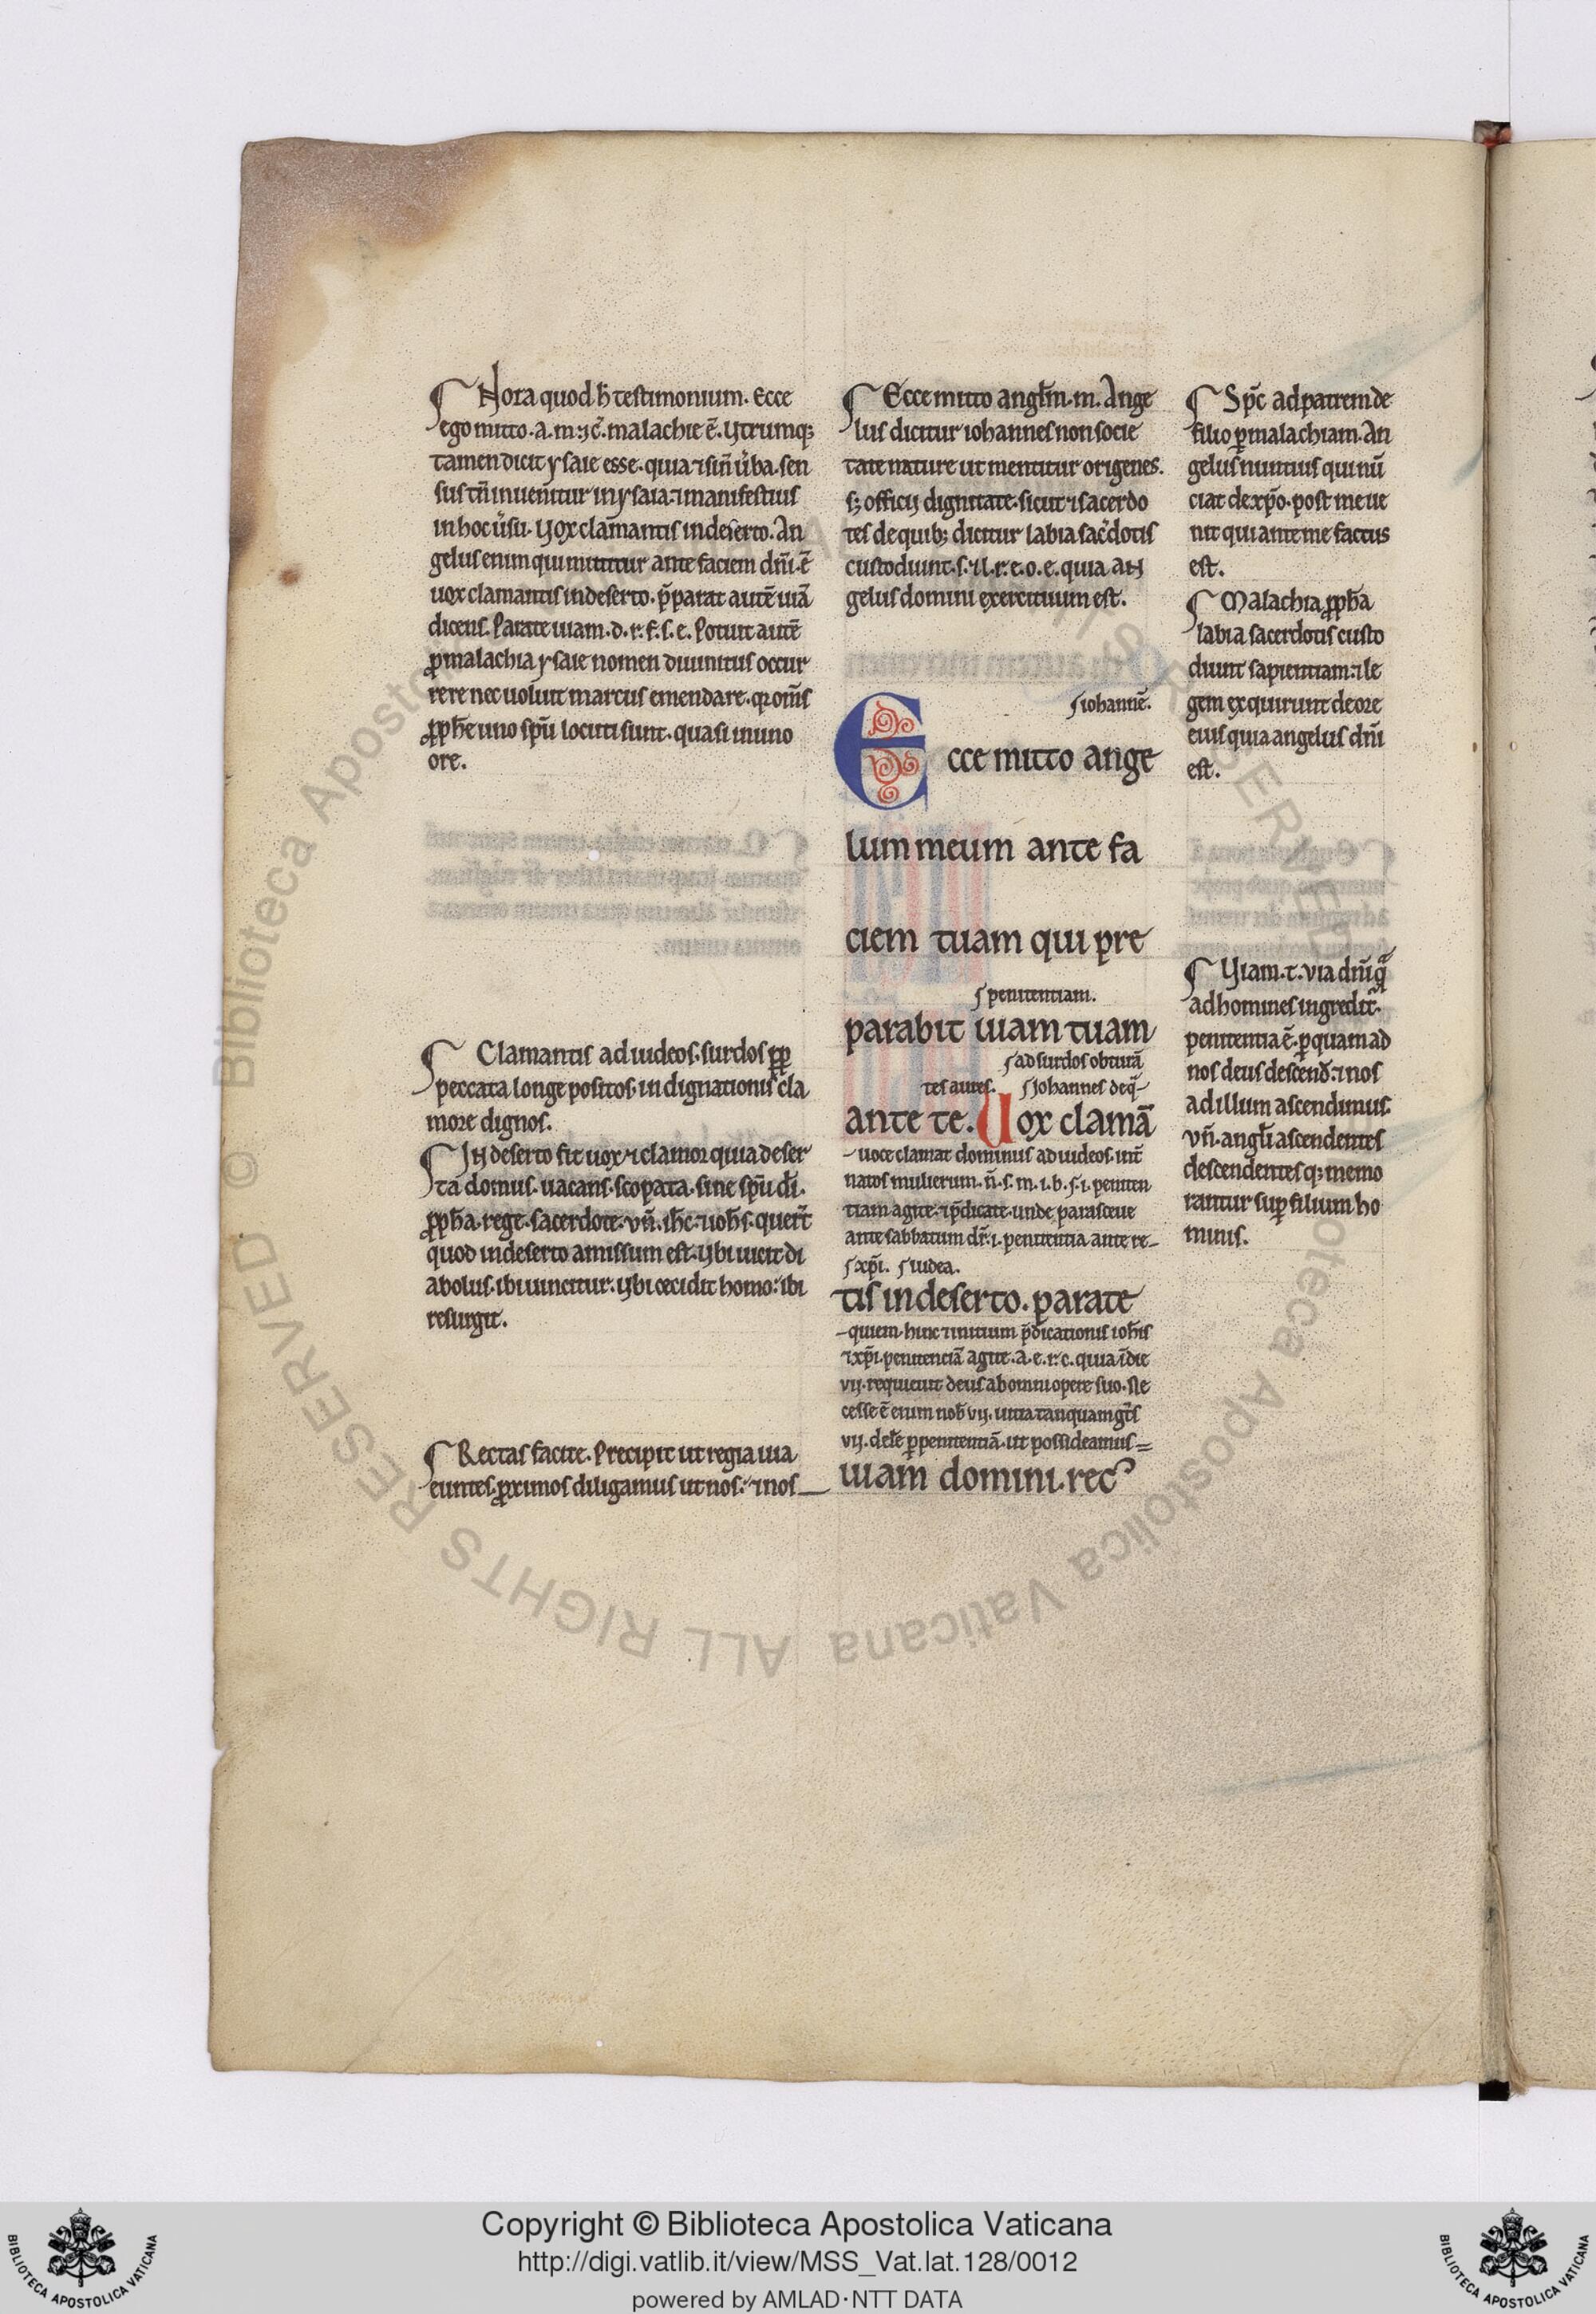 Nota quod h̄ testimonium. Ecce
ego mitto .a. m. ⁊ c̄. malachie ē. Vtrumq;
tamen dicit ysaie esse. quia ⁊ si n̄ ūba. sen
sus tn̄ inuenitur in ysaia. ⁊ manifestius
in hoc ūsu. Vox clamantis in deserto. An
gelus enim qui mittitur ante faciem dn̄i. ē
uox clamantis in deserto. p̄parat autē uiā
dicens. Parate uiam .d. r. f. s. e. Potuit autē
ꝓ malachia ysaie nomen diuinitus occur
rere nec uoluit marcus emendare. qr om̄s
ꝓph̄e uno sp̄u locuti sunt. quasi in uno
ore.
Clamantis ad iudeos. surdos ꝓp
peccata longe positos. indignationis cla
more dignos.
In deserto fit uox ⁊ clamor quia deser
ta domus. uacans. scopata. sine sp̄u dī.
ꝓph̄a. rege. sacerdote. vn̄. ih̄c. ⁊ ioh̄s. querit
quod in deserto amissum est. Vbi uicit di
abolus. ibi uincitur. Vbi cecidit homo: ibi
resurgit.
Rectas facite. Precipit ut regia uia
euntes. ꝓximos diligamus ut nos. ⁊ nos
Ecce mitto angl̄m .m. Ange
lus dicitur iohannes non socie
tate nature ut mentitur origenes.
s; officij dignitate. sicut ⁊ sacerdo
tes de quib; dicitur labia sac̄dotis
custodiunt .s. ⁊ l. r. e. o. e. quia an
gelus domini exercituum est.
s iohannē.
Ecce mitto ange
lum meum ante fa
ciem tuam qui pre
s penitentiam.
parabit uiam tuam
s ad surdos obturā
tes aures. s Iohannes de q̄
ante te. Vox clamā
uoce clamat dominus ad iudeos. int̄
natos mulierum. n̄. s. m. i. b. s. i. peniten
tiam agite. ⁊ p̄dicate. unde parasceue
ante sabbatum dr̄. i. penitentia ante re
s xp̄i. s iudea.
tis in deserto. parate
quiem. hinc ⁊ initium p̄dicationis ioh̄is
⁊ xp̄i. penitenciā agite. a. e. r. c. quia ī die
vij. requieuit deus ab omni opere suo. Ne
cesse ē enim nob̄ vij. uitia tanquam gt̄s
vij. del̄e p penitentiā. ut possideamus
uiam domini. rec
Sp̄c ad patrem de
filio ꝑ malachiam. An
gelus nuntius qui nū
ciat de xp̄o. post me ue
nit qui ante me factus
est.
Malachia ꝓph̄a
labia sacerdotis custo
diunt sapientiam. ⁊ le
gem exquirunt de ore
eius quia angelus dn̄i
est.
Viam .t. via dn̄i q̄
ad homines ingredit̄.
penitentia ē. ꝑ quam ad
nos deus descend̄. ⁊ nos
ad illum ascendimus.
vn̄. angl̄i ascendentes
descendentesq; memo
rantur suꝑ filium ho
minis.
Copyright © Biblioteca Apostolica Vaticana
http://digi.vatlib.it/view/MSS_Vat.lat.128/0012
powered by AMLAD·NTT DATA